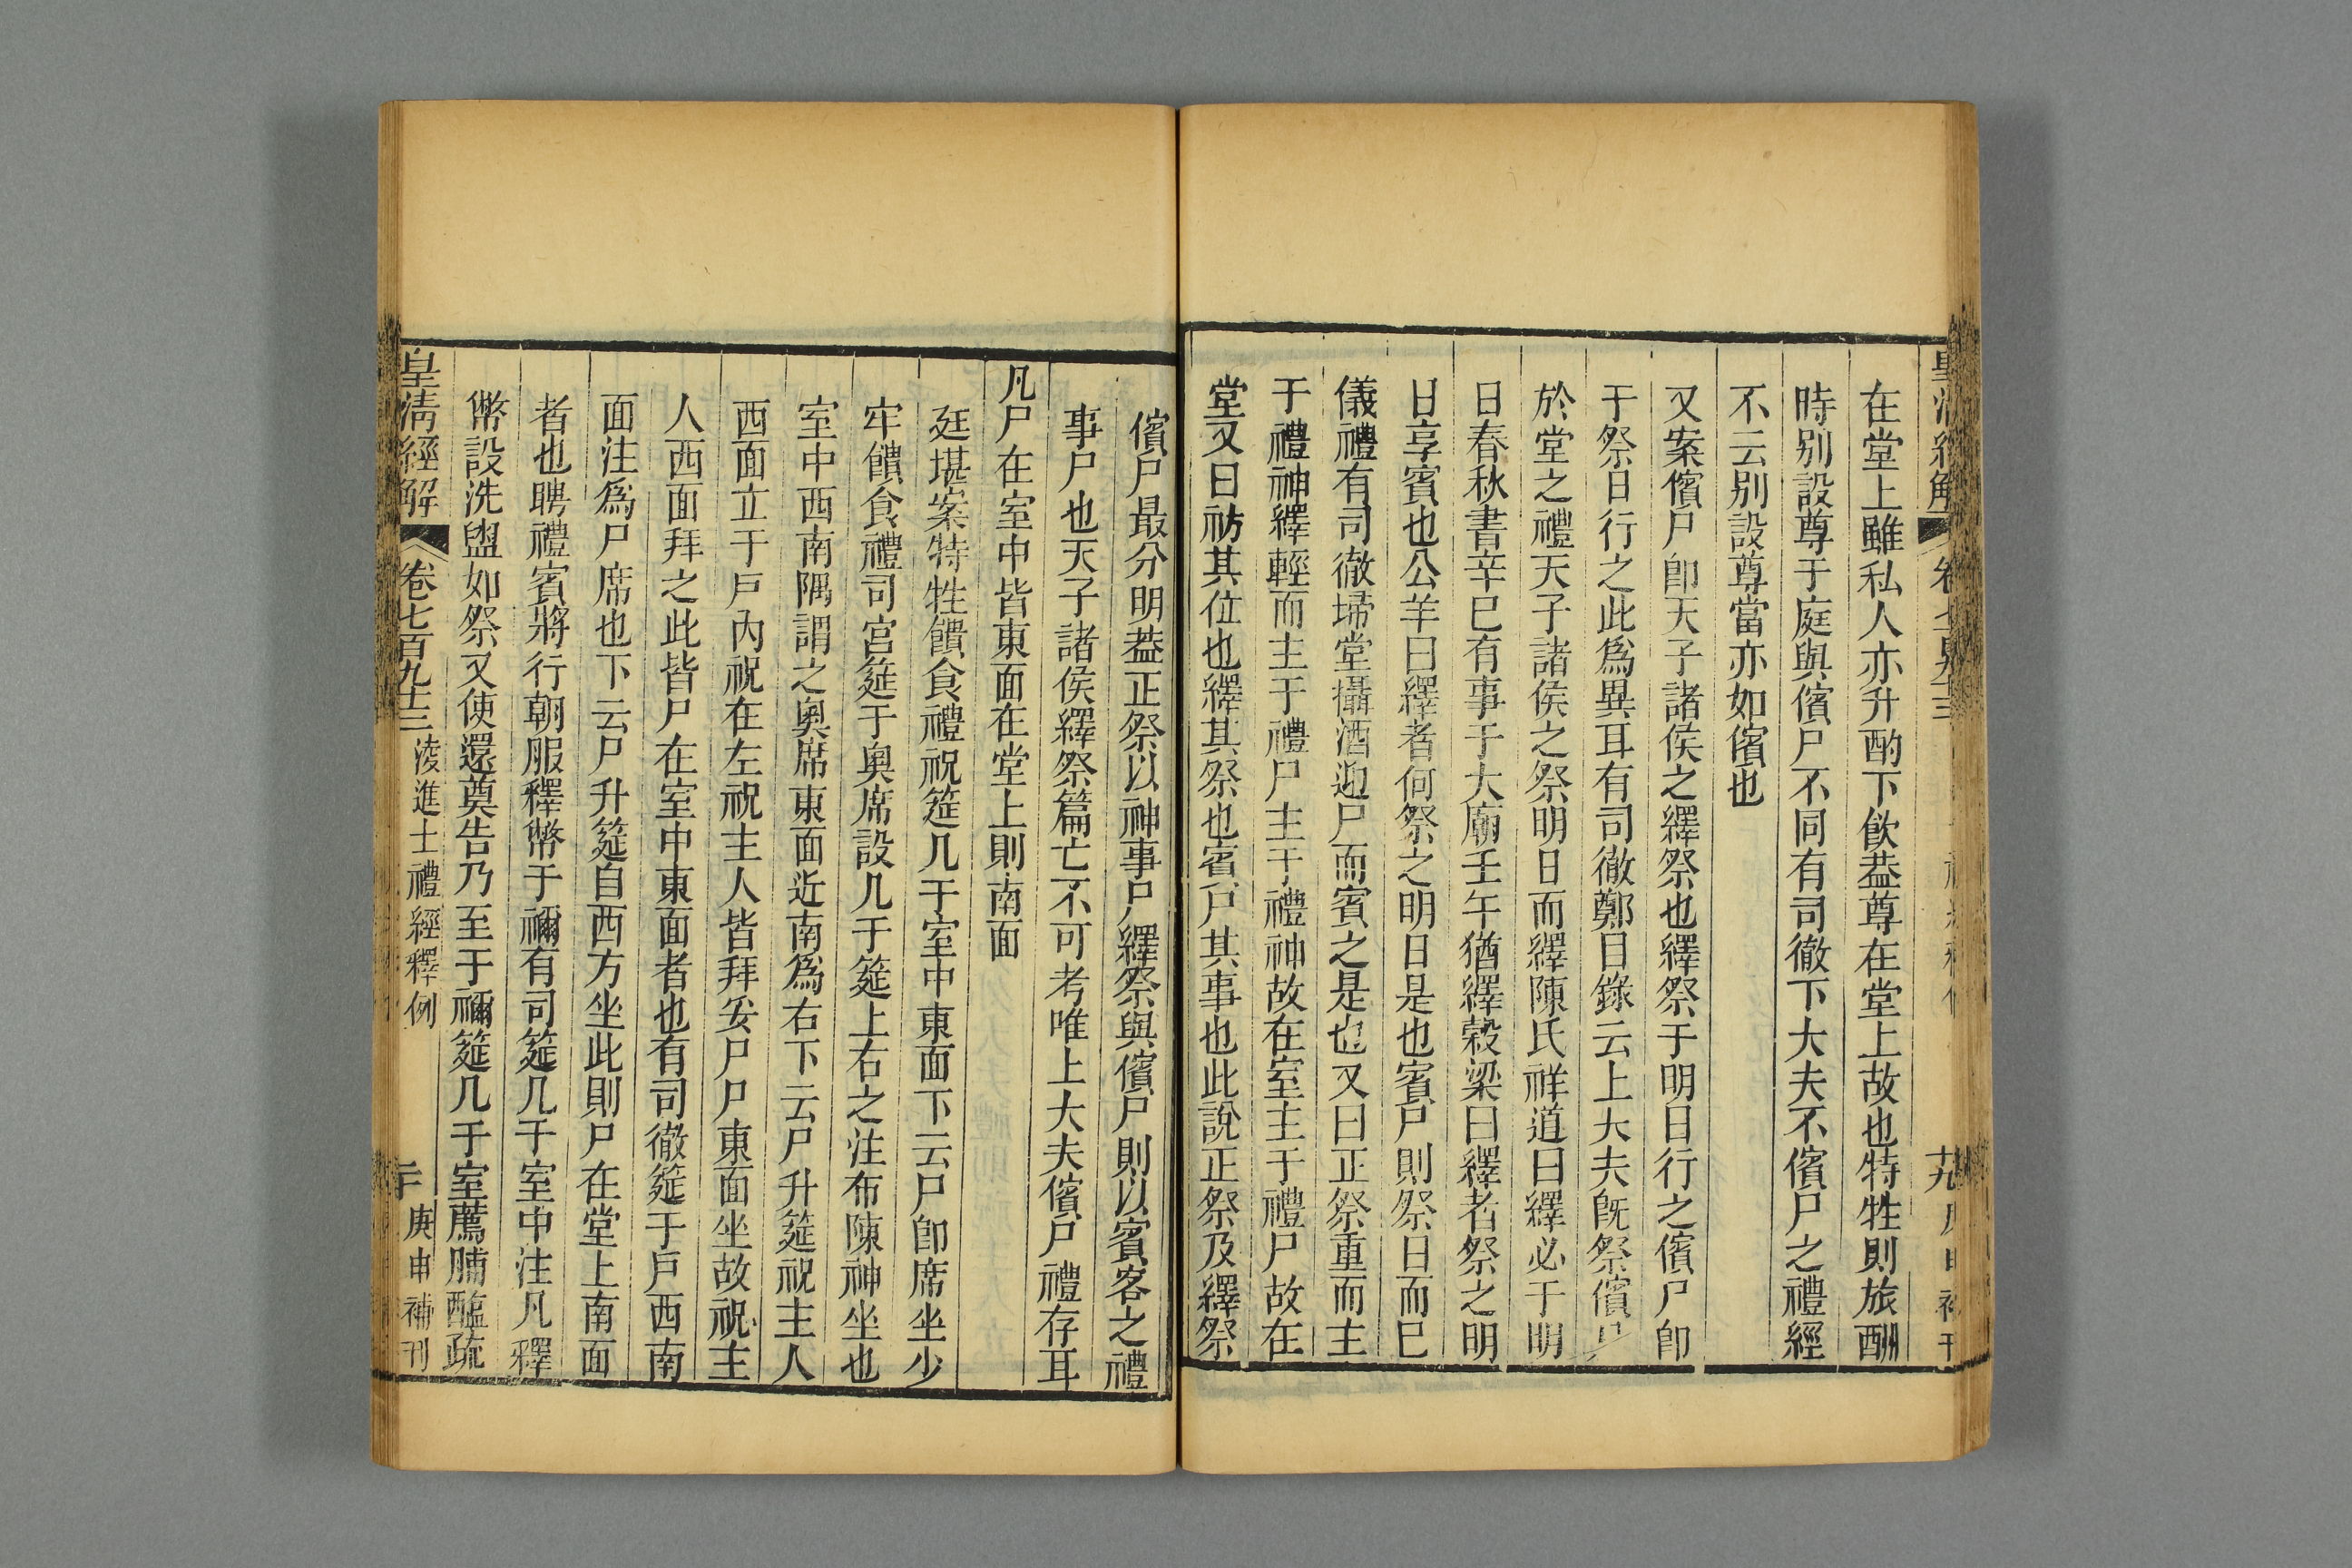 在堂上雖私人亦升酌下飲葢尊在堂上故也特牲則旅酬
時别設尊于庭與儐尸不同有司徹下大夫不儐尸之禮經
不云别設尊當亦如儐也
又案儐尸卽天子諸侯之繹祭也繹祭于明日行之儐尸卽
于祭日行之此爲異耳有司徹鄭目錄云上大夫旣祭儐尸
於堂之禮天子諸侯之祭明日而繹陳氏祥道曰繹必于明
日春秋書辛巳有事于大廟壬午猶繹榖梁曰繹者祭之明
日享賓也公羊曰繹者何祭之明日是也賓尸則祭日而已
儀禮有司徹埽堂攝酒迎尸而賓之是也又曰正祭重而主
于禮神繹輕而主于禮尸主于禮神故在室主于禮尸故在
堂又曰祊其位也繹其祭也賓尸其事也此說正祭及繹祭
儐尸最分明葢正祭以神事尸繹祭與儐尸則以賓客之禮
事尸也天子諸侯繹祭篇亡不可考唯上大夫儐尸禮存耳
凡尸在室中皆東面在堂上則南面
廷堪案特牲饋食禮祝筵几于室中東面下云尸卽席坐少
牢饋食禮司宮筵于奧席設几于筵上右之注布陳神坐也
室中西南隅謂之奧席東面近南爲右下云尸升筵祝主人
西面立于戸內祝在左祝主人皆拜妥尸尸東面坐故祝主
人西面拜之此皆尸在室中東面者也有司徹筵于戸西南
面注爲尸席也下云尸升筵自西方坐此則尸在堂上南面
者也聘禮賓將行朝服釋幣于禰有司筵几于室中注凡釋
幣設洗盥如祭又使還奠告乃至于禰筵几于室薦脯醢疏
皇淸經解 卷七百九十三 淩進士禮經釋例 二十 庚申補刊